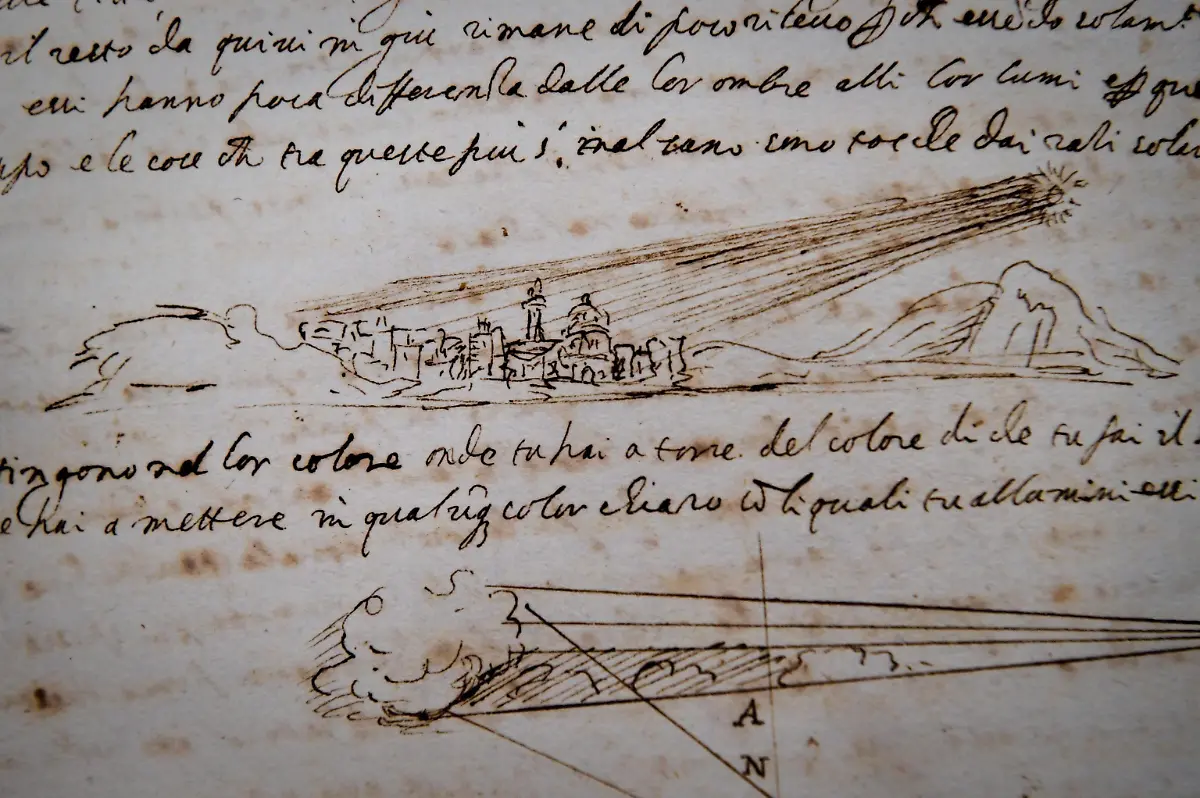 il resto da quivi in giu rimane di poco rilevo essẽdo solam.
essi hanno poca differenza dalle lor ombre alli lor lumi
e le cose cħ tra queste piu s'inalzano sono tocche dai razi solar
tingono nel lor colore onde tu hai a torre del colore di che tu fai il
e hai a mettere in qualũq color chiaro cõ li quali tu allumini essi
A
N